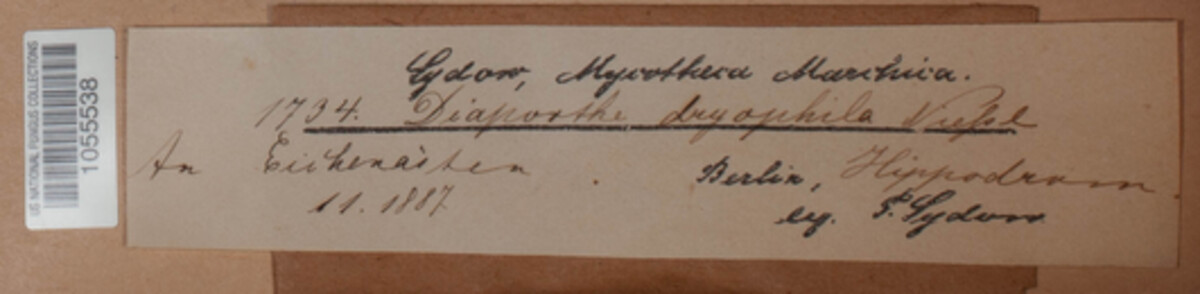 US NATIONAL FUNGUS COLLECTIONS
1055538
Sydow, Mycotheca Marchica.
1734. Diaporthe dryophila Nießl
An Eichenästen Berlin, Hippodrom
11. 1887. leg. P. Sydow